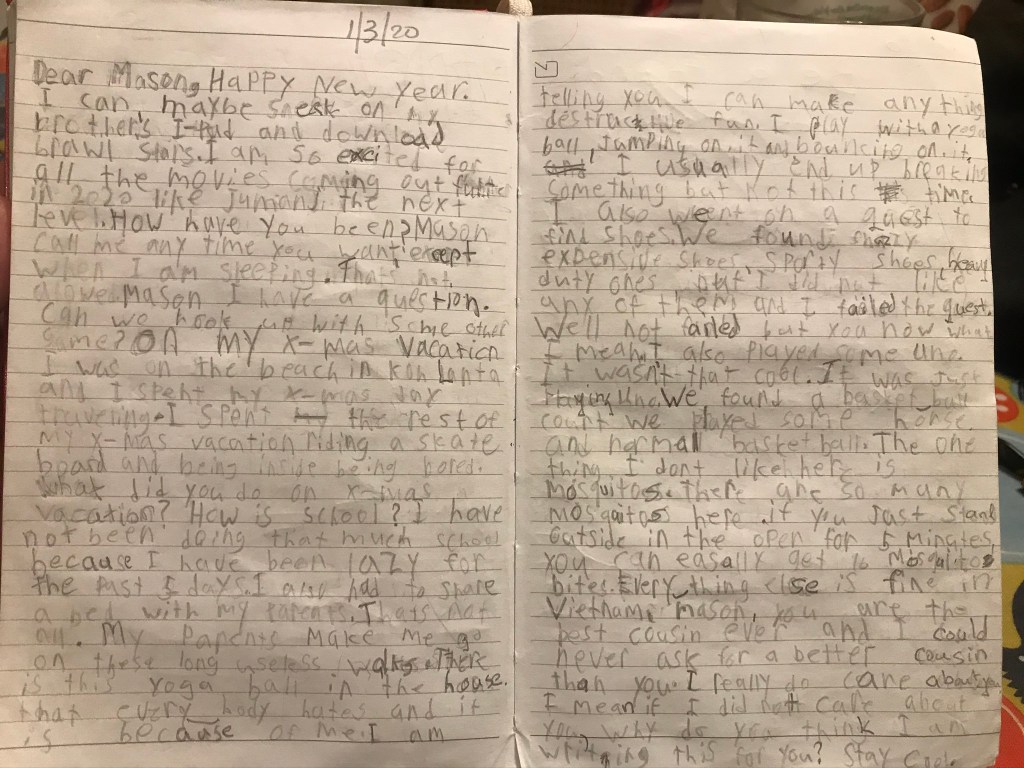 1/3/20
Dear Mason, Happy New Year.
I can maybe sneak on my
brother's I-Pad and download
brawl stars. I am so excited for
all the movies coming out
in 2020 like Jumanji the next
level. How have you been? Mason
call me any time you want except
when I am sleeping. Thats not
Mason I have a question.
Can we hook up with some other
game? On my x-mas vacation
I was on the beach in Kon
and I spent my x-mas day
traveling. I spent the rest of
my x-mas vacation riding a skate
board and being inside being bored.
What did you do on x-mas
vacation? How is school? I have
not been doing that much school
because I have been lazy for
the past 5 days. I also had to share
a bed with my parents. Thats not
all. My parents make me go
on these long useless walks. There
is this yoga ball in the house.
that every body hates and it
is because of me. I am
telling you I can make any thing
destructive fun. I play with a yoga
ball, Jumping on it and bouncing on it.
I usually end up breaking
something but not this time.
I also went on a quest to
find shoes. We found
expensive shoes, sporty shoes, heavy
duty ones but I did not like
any of them and I failed the quest.
Well not failed but you now what
I mean. I also played some Uno.
It wasn't that cool. It was just
playing Uno. We found a basket ball
court we played some horse
and normal basketball. The one
thing I dont like here is
mosquitos. There are so many
mosquitos here. if you Just stand
outside in the open for 5 minutes
you can easally get 16 mosquito
bites. Every thing else is fine in
Vietnam. mason, you are the
best cousin ever and I could
never ask for a better cousin
than you. I really do care about you
I mean if I did not care about
you why do you think I am
writning this for you? Stay cool.